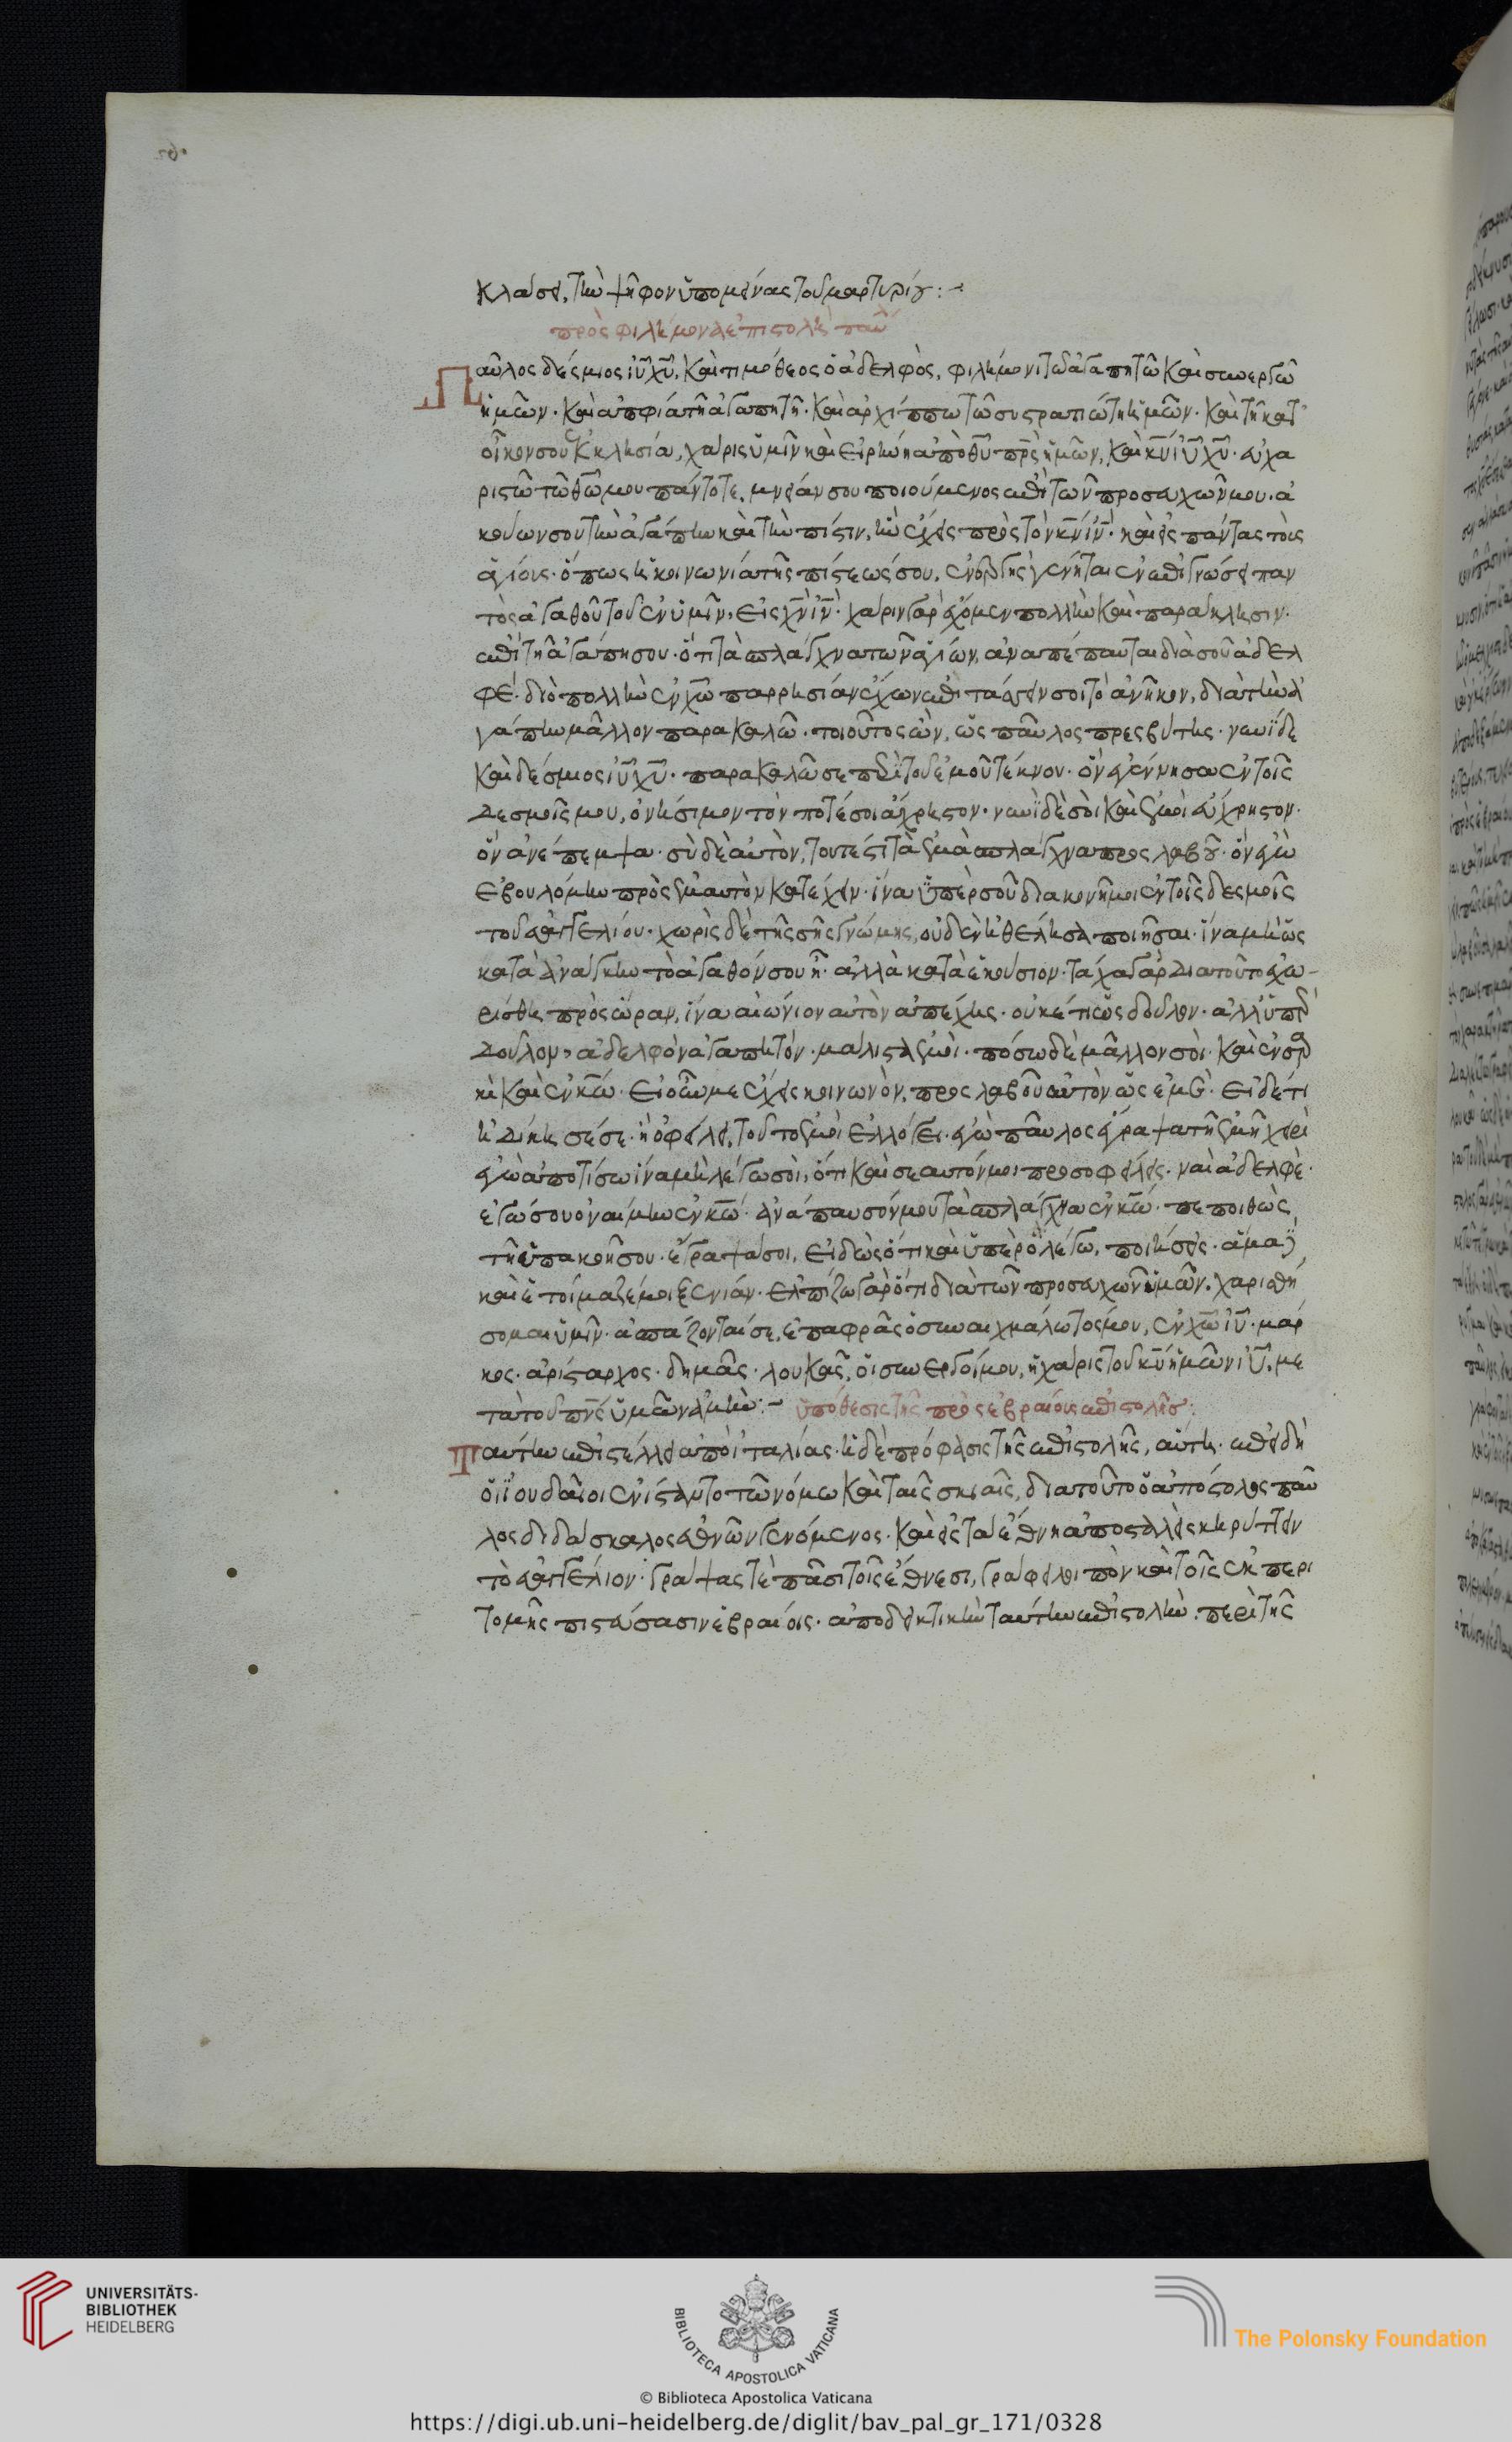 κλαίσει, τὴν ψῆφον ὑπομείνας τοῦ μαρτυρίου :~
πρὸς φιλήμονα ἐπιστολὴ παύλ
Παῦλος δέσμιος ἰῡ χῡ, καὶ τιμόθεος ὁ ἀδελφὸς, φιλήμονι τῶ ἀγαπητῶ καὶ συνεργῶ
ἡμῶν· καὶ ἀπφία τῆ ἀγαπητῆ· καὶ ἀρχίππω τῶ συστρατιώτη ἡμῶν· καὶ τῆ κατ'
οἶκον σου ἐκκλησία, χάρις ὑμῖν καὶ εἰρήνη ἀπὸ θῡ πρ̄ς ἡμῶν, καὶ κῡ ἰῡ χῡ· εὐχα
ριστῶ τῶ θω̄ μου πάντοτε, μνείαν σου ποιούμενος ἐπὶ τῶν προσευχῶν μου· ἀ
κούων σου τὴν ἀγάπην καὶ τὴν πίστιν, ἣν ἔχεις πρὸς τὸν κν̄ ἰν̄· καὶ εἰς πάντας τοὺς
ἁγίους· ὅπως ἡ κοινωνία τῆς πίστεώς σου, ἐνεργὴς γένηται ἐν ἐπιγνώσει παν
τὸς ἀγαθοῦ τοῦ ἐν ὑμῖν, εἰς χν̄ ἰν̄· χάριν γὰρ ἔχομεν πολλὴν καὶ παράκλησιν·
ἐπὶ τῆ ἀγάπη σου· ὅτι τὰ σπλάγχνα τῶν ἁγίων, ἀναπέπαυται διὰ σοῦ ἀδελ
φέ· διὸ πολλὴν ἐν χω̄ παρρησίαν ἔχων ἐπιτάσσειν σοι τὸ ἀνῆκον, διὰ τὴν ἀ
γάπην μᾶλλον παρακαλῶ· τοιοῦτος ὢν, ὡς παῦλος πρεσβύτης· νυνὶ δὲ
καὶ δέσμιος ἰῡ χῡ· παρακαλῶ σε περὶ τοῦ ἐμοῦ τέκνου· ὃν ἐγέννησα ἐν τοῖς
δεσμοῖς μου, ὀνήσιμον τόν ποτέ σοι ἄχρηστον· νυνὶ δὲ σοὶ καὶ ἐμοὶ εὔχρηστον·
ὃν ἀνέπεμψα· σὺ δὲ αὐτὸν, τουτέστι τὰ ἐμὰ σπλάγχνα προσλαβοῦ· ὃν ἐγὼ
ἐβουλόμην πρὸς ἐμαυτὸν κατέχειν· ἵνα ὑπὲρ σοῦ διακονῆ μοι ἐν τοῖς δεσμοῖς
τοῦ εὐαγγελίου· χωρὶς δὲ τῆς σῆς γνώμης, οὐδὲν ἠθέλησα ποιῆσαι· ἵνα μὴ ὡς
κατὰ ἀνάγκην τὸ ἀγαθόν σου ἦ· ἀλλὰ κατὰ ἑκούσιον· τάχα γὰρ διατοῦτο ἐχω-
ρίσθη πρὸς ὥραν, ἵνα αἰώνιον αὐτὸν ἀπέχης· οὐκέτι ὡς δοῦλον· ἀλλ' ὑπὲρ
δοῦλον, ἀδελφὸν ἀγαπητόν· μάλιστα ἐμοὶ· πόσω δὲ μᾶλλον σοὶ· καὶ ἐν σαρ
κὶ καὶ ἐν κω̄· εἰ οὖν με ἔχεις κοινωνὸν, προσλαβοῦ αὐτὸν ὡς ἐμέ· εἰ δέ τι
ἠδίκησέ σε· ἢ ὀφείλει, τοῦτο ἐμοὶ ἐλλόγει· ἐγὼ παῦλος ἔγραψα τῆ ἐμῆ χειρὶ
ἐγὼ ἀποτίσω ἵνα μὴ λέγω σοὶ, ὅτι καὶ σεαυτόν μοι προσοφείλεις· ναὶ ἀδελφὲ·
ἐγώ σου ὀναίμην ἐν κω̄· ἀνάπαυσόν μου τὰ σπλάγχνα ἐν κω̄· πεποιθὼς
τῆ ὑπακοῆ σου· ἔγραψά σοι, εἰδὼς ὅτι καὶ ὑπὲρ ὃ λέγω, ποιήσεις· ἅμα δὲ
καὶ ἑτοίμαζέ μοι ξενίαν· ἐλπίζω γὰρ ὅτι διὰ τῶν προσευχῶν ὑμῶν, χαρισθή
σομαι ὑμῖν· ἀσπάζονταί σε, ἐπαφρᾶς ὁ συναιχμάλωτός μου, ἐν χω̄ ἰῡ· μάρ
κος· ἀρίσταρχος· δημᾶς· λουκᾶς, οἱ συνεργοί μου, ἡ χάρις τοῦ κῡ ἡμῶν ἰῡ χῡ, με
τὰ τοῦ πνς̄ ὑμῶν ἀμήν :~ ὑπόθεσις τῆς πρὸς ἑβραίους ἐπιστολῆς :
Ταύτην ἐπιστέλλει ἀπὸ ἰταλίας· ἡ δὲ πρόφασις τῆς ἐπιστολῆς, αὕτη· ἐπειδὴ
οἱ ἰουδαῖοι ἐνίσταντο τῶ νόμω καὶ ταῖς σκιαῖς, διατοῦτο ὁ ἀπόστολος παῦ
λος διδάσκαλος ἐθνῶν γενόμενος· καὶ εἰς τὰ ἔθνη ἀποσταλεὶς κηρύττειν
τὸ εὐαγγέλιον· γράψας τὲ πᾶσι τοῖς ἔθνεσι, γράφει λοιπὸν καὶ τοῖς ἐκ περι
τομῆς πιστεύσασιν ἑβραίοις· ἀποδεικτικὴν ταύτην ἐπιστολὴν· περὶ τῆς
UNIVERSITÄTS-
BIBLIOTHEK
HEIDELBERG
BIBLIOTECA APOSTOLICA VATICANA
© Biblioteca Apostolica Vaticana
The Polonsky Foundation
https://digi.ub.uni-heidelberg.de/diglit/bav_pal_gr_171/0328